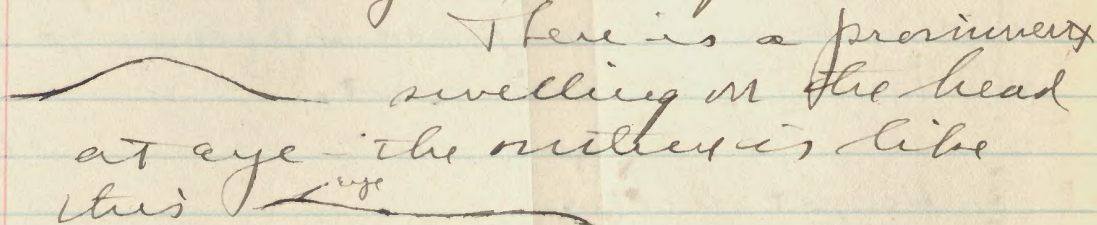 There is a prominent
swelling on the head
at eye - the outline is like
this eye